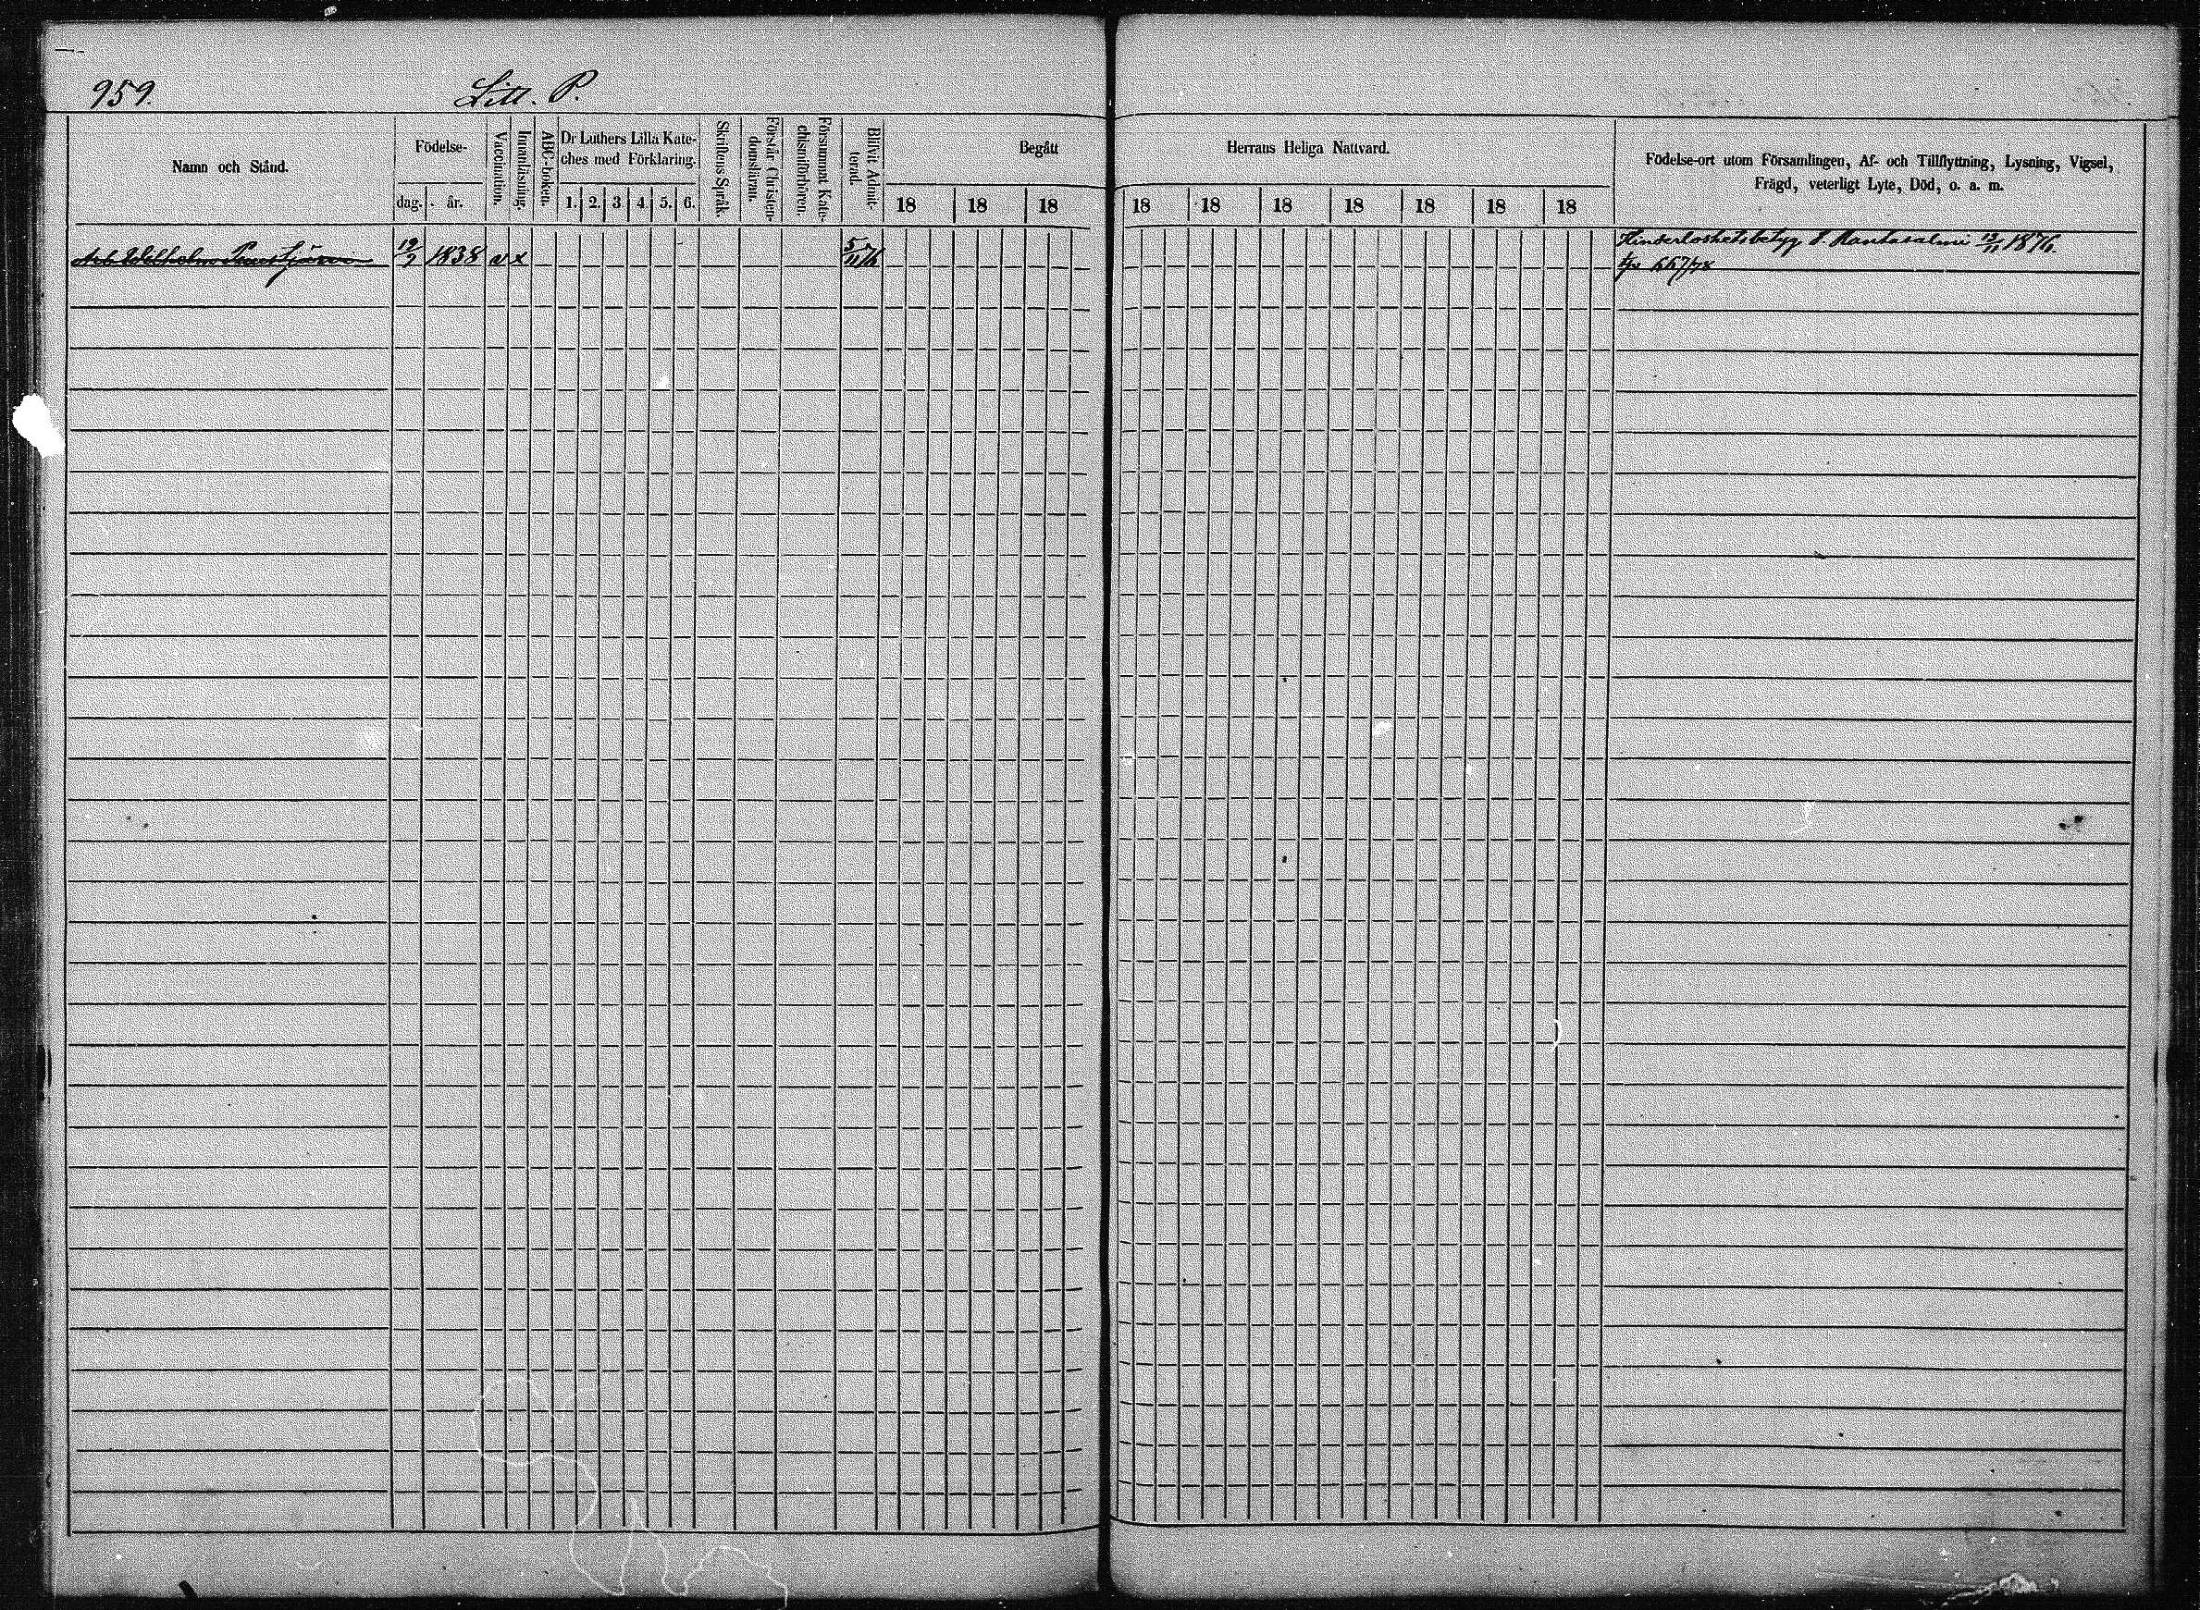 959.
Litt. P.
Namn och Stånd.
Födelse-
dag.
år.
Vaccination.
Innanläsning.
ABC-boken.
Dr Luthers Lilla Kate-
ches med Förklaring.
1. 2. 3 4. 5. 6.
Skriftens Språk.
Förstår Christen-
domsläran.
Försummat Kate-
chismiförhören.
Blifvit Admit-
terad.
Begått
18 18 18
Herrans Heliga Nattvard.
18 18 18 18 18 18 18
Födelse-ort utom Församlingen, Af- och Tillflyttning, Lysning, Vigsel,
Frägd, veterligt Lyte, Död, o. a. m.
19/7 1838 v x
5/11 76
Hinderloshetsbetyg f. Rantasalmi 1876.
667/78